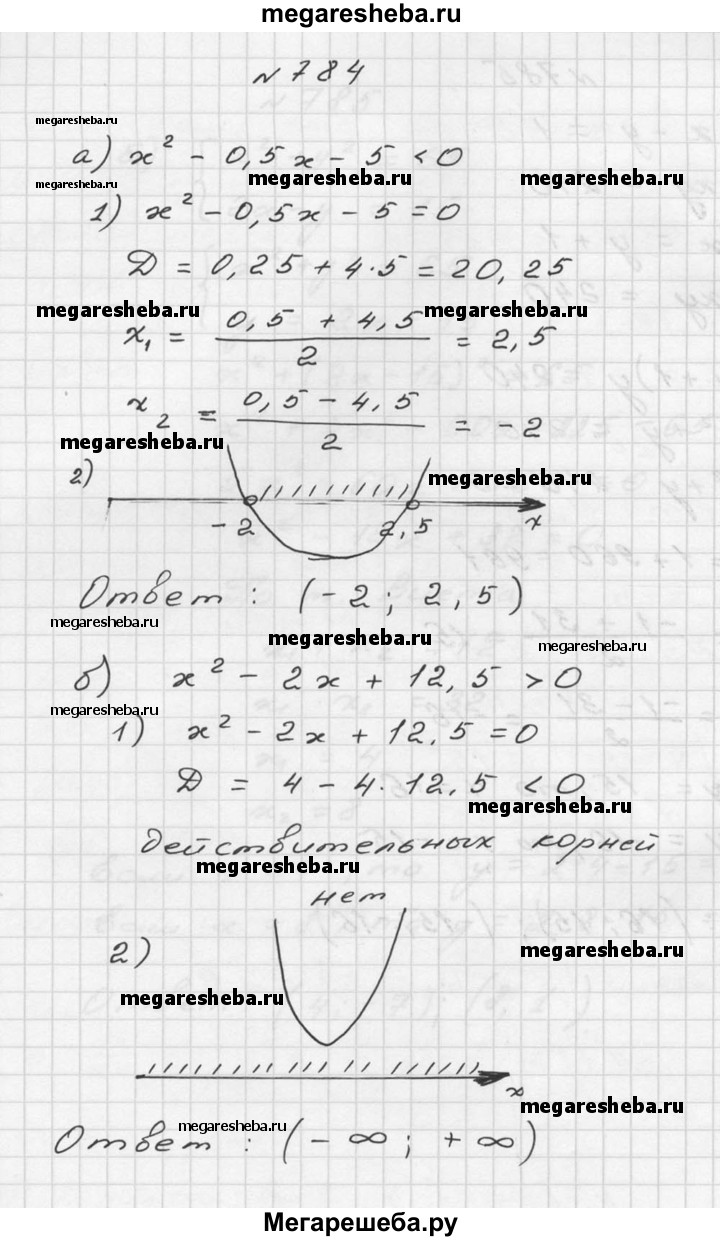 megaresheba.ru
№784
megaresheba.ru
а) x² - 0,5x - 5 < 0
megaresheba.ru megaresheba.ru
megaresheba.ru
1) x² - 0,5x - 5 = 0
D = 0,25 + 4·5 = 20,25
megaresheba.ru megaresheba.ru
x₁ = (0,5 + 4,5)/2 = 2,5
x₂ = (0,5 - 4,5)/2 = -2
megaresheba.ru
2)
megaresheba.ru
-2 2,5 x
Ответ: (-2; 2,5)
megaresheba.ru
megaresheba.ru megaresheba.ru
б) x² - 2x + 12,5 > 0
megaresheba.ru
1) x² - 2x + 12,5 = 0
D = 4 - 4·12,5 < 0
megaresheba.ru
действительных корней
megaresheba.ru
нет
2)
megaresheba.ru
megaresheba.ru
x
megaresheba.ru
megaresheba.ru
Ответ: (-∞; +∞)
Мегарешеба.ру